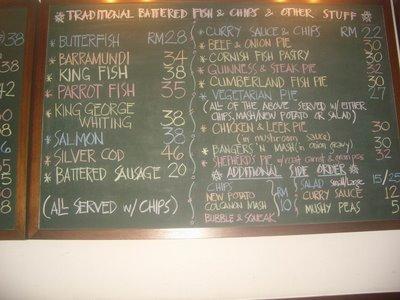 TRADITIONAL BATTERED FISH & CHIPS & OTHER STUFF
* BUTTERFISH RM 28
* BARRAMUNDI 34
* KING FISH 38
* PARROT FISH 35
* KING GEORGE WHITING 38
* SALMON 38
* SILVER COD 46
* BATTERED SAUSAGE 20
(ALL SERVED w/ CHIPS)
* CURRY SAUCE & CHIPS RM 22
* BEEF & ONION PIE 30
* CORNISH FISH PASTRY 30
* GUINNESS & STEAK PIE 32
* CUMBERLAND FISH PIE 30
* VEGETARIAN PIE 27
(ALL OF THE ABOVE SERVED w/ EITHER
CHIPS, MASH/NEW POTATO OR SALAD)
* CHICKEN & LEEK PIE 30
(in mushroom sauce)
* BANGERS 'N MASH (in onion gravy) 30
* SHEPHERDS PIE w/ roast carrot & green peas 32
ADDITIONAL SIDE ORDER
CHIPS
NEW POTATO
COLCANON MASH
BUBBLE & SQUEAK
RM 10
SALAD small/large 15/25
CURRY SAUCE 12
MUSHY PEAS 5